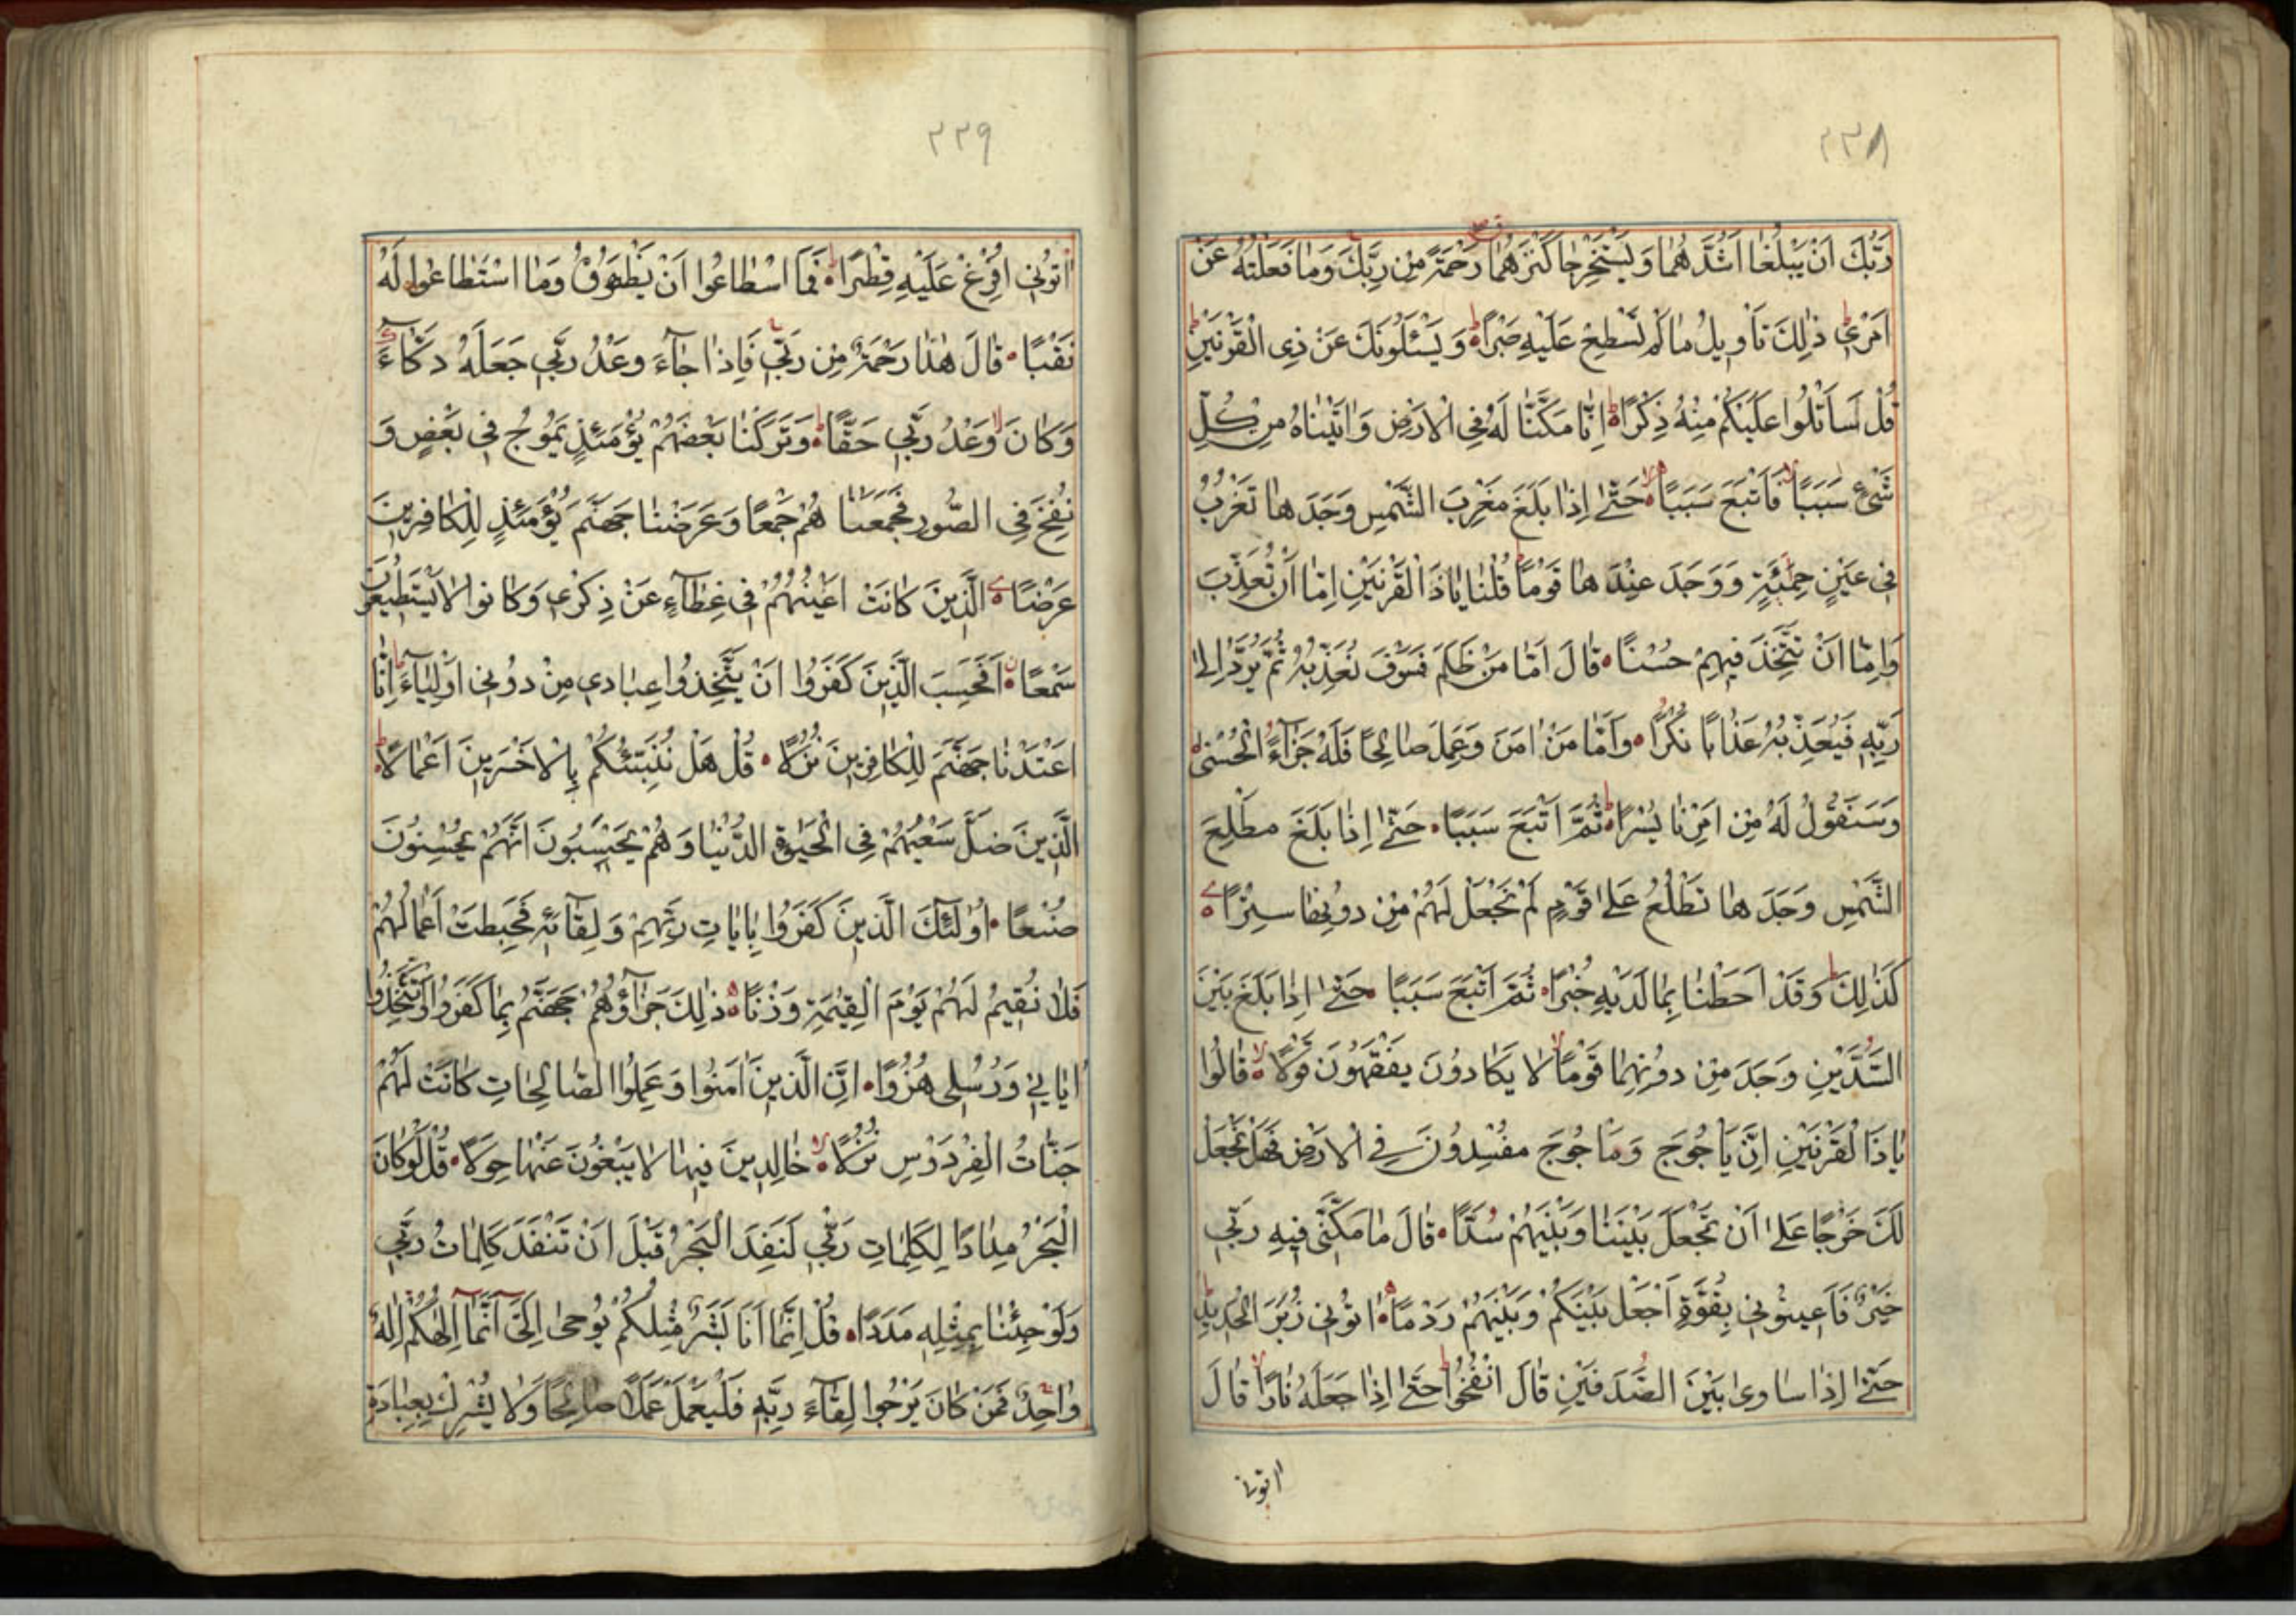 ٢٣٨
رَبُّكَ اَنْ يَبْلُغَا اَشُدَّهُمَا وَيَسْتَخْرِجَا كَنْزَهُمَا رَحْمَةً مِنْ رَبِّكَ وَمَا فَعَلْتُهُ عَنْ
اَمْرِي ذٰلِكَ تَاْوِيلُ مَا لَمْ تَسْطِعْ عَلَيْهِ صَبْرًا وَيَسْئَلُونَكَ عَنْ ذِي الْقَرْنَيْنِ
قُلْ سَاَتْلُوا عَلَيْكُمْ مِنْهُ ذِكْرًا اِنَّا مَكَّنَّا لَهُ فِي الْاَرْضِ وَاٰتَيْنَاهُ مِنْ كُلِّ
شَيْءٍ سَبَبًا فَاَتْبَعَ سَبَبًا حَتّٰى اِذَا بَلَغَ مَغْرِبَ الشَّمْسِ وَجَدَهَا تَغْرُبُ
فِي عَيْنٍ حَمِئَةٍ وَوَجَدَ عِنْدَهَا قَوْمًا قُلْنَا يَاذَا الْقَرْنَيْنِ اِمَّا اَنْ تُعَذِّبَ
وَاِمَّا اَنْ تَتَّخِذَ فِيهِمْ حُسْنًا قَالَ اَمَّا مَنْ ظَلَمَ فَسَوْفَ نُعَذِّبُهُ ثُمَّ يُرَدُّ اِلٰى
رَبِّهِ فَيُعَذِّبُهُ عَذَابًا نُكْرًا وَاَمَّا مَنْ اٰمَنَ وَعَمِلَ صَالِحًا فَلَهُ جَزَآءً الْحُسْنٰى
وَسَنَقُولُ لَهُ مِنْ اَمْرِنَا يُسْرًا ثُمَّ اَتْبَعَ سَبَبًا حَتّٰى اِذَا بَلَغَ مَطْلِعَ
الشَّمْسِ وَجَدَهَا تَطْلُعُ عَلٰى قَوْمٍ لَمْ نَجْعَلْ لَهُمْ مِنْ دُونِهَا سِتْرًا
كَذٰلِكَ وَقَدْ اَحَطْنَا بِمَا لَدَيْهِ خُبْرًا ثُمَّ اَتْبَعَ سَبَبًا حَتّٰى اِذَا بَلَغَ بَيْنَ
السَّدَّيْنِ وَجَدَ مِنْ دُونِهِمَا قَوْمًا لَا يَكَادُونَ يَفْقَهُونَ قَوْلًا قَالُوا
يَاذَا الْقَرْنَيْنِ اِنَّ يَاْجُوجَ وَمَاْجُوجَ مُفْسِدُونَ فِي الْاَرْضِ فَهَلْ نَجْعَلُ
لَكَ خَرْجًا عَلٰى اَنْ تَجْعَلَ بَيْنَنَا وَبَيْنَهُمْ سُدًّا قَالَ مَا مَكَّنِّي فِيهِ رَبِّي
خَيْرٌ فَاَعِينُونِي بِقُوَّةٍ اَجْعَلْ بَيْنَكُمْ وَبَيْنَهُمْ رَدْمًا اٰتُونِي زُبَرَ الْحَدِيدِ
حَتّٰى اِذَا سَاوٰى بَيْنَ الصَّدَفَيْنِ قَالَ انْفُخُوا حَتّٰى اِذَا جَعَلَهُ نَارًا قَالَ
اتونى
٢٣٩
اٰتُونِي اُفْرِغْ عَلَيْهِ قِطْرًا فَمَا اسْطَاعُوا اَنْ يَظْهَرُوهُ وَمَا اسْتَطَاعُوا لَهُ
نَقْبًا قَالَ هٰذَا رَحْمَةٌ مِنْ رَبِّي فَاِذَا جَآءَ وَعْدُ رَبِّي جَعَلَهُ دَكَّآءَ
وَكَانَ وَعْدُ رَبِّي حَقًّا وَتَرَكْنَا بَعْضَهُمْ يَوْمَئِذٍ يَمُوجُ فِي بَعْضٍ وَ
نُفِخَ فِي الصُّورِ فَجَمَعْنَا هُمْ جَمْعًا وَعَرَضْنَا جَهَنَّمَ يَوْمَئِذٍ لِلْكَافِرِينَ
عَرْضًا الَّذِينَ كَانَتْ اَعْيُنُهُمْ فِي غِطَآءٍ عَنْ ذِكْرِي وَكَانُوا لَا يَسْتَطِيعُونَ
سَمْعًا اَفَحَسِبَ الَّذِينَ كَفَرُوا اَنْ يَتَّخِذُوا عِبَادِي مِنْ دُونِي اَوْلِيَآءَ اِنَّا
اَعْتَدْنَا جَهَنَّمَ لِلْكَافِرِينَ نُزُلًا قُلْ هَلْ نُنَبِّئُكُمْ بِالْاَخْسَرِينَ اَعْمَالًا
الَّذِينَ ضَلَّ سَعْيُهُمْ فِي الْحَيٰوةِ الدُّنْيَا وَهُمْ يَحْسَبُونَ اَنَّهُمْ يُحْسِنُونَ
صُنْعًا اُولٰئِكَ الَّذِينَ كَفَرُوا بِاٰيَاتِ رَبِّهِمْ وَلِقَآئِهِ فَحَبِطَتْ اَعْمَالُهُمْ
فَلَا نُقِيمُ لَهُمْ يَوْمَ الْقِيٰمَةِ وَزْنًا ذٰلِكَ جَزَآؤُهُمْ جَهَنَّمُ بِمَا كَفَرُوا وَاتَّخَذُوا
اٰيَاتِي وَرُسُلِي هُزُوًا اِنَّ الَّذِينَ اٰمَنُوا وَعَمِلُوا الصَّالِحَاتِ كَانَتْ لَهُمْ
جَنَّاتُ الْفِرْدَوْسِ نُزُلًا خَالِدِينَ فِيهَا لَا يَبْغُونَ عَنْهَا حِوَلًا قُلْ لَوْ كَانَ
الْبَحْرُ مِدَادًا لِكَلِمَاتِ رَبِّي لَنَفِدَ الْبَحْرُ قَبْلَ اَنْ تَنْفَدَ كَلِمَاتُ رَبِّي
وَلَوْ جِئْنَا بِمِثْلِهِ مَدَدًا قُلْ اِنَّمَا اَنَا بَشَرٌ مِثْلُكُمْ يُوحٰى اِلَيَّ اَنَّمَا اِلٰهُكُمْ اِلٰهٌ
وَاحِدٌ فَمَنْ كَانَ يَرْجُوا لِقَآءَ رَبِّهِ فَلْيَعْمَلْ عَمَلًا صَالِحًا وَلَا يُشْرِكْ بِعِبَادَةِ